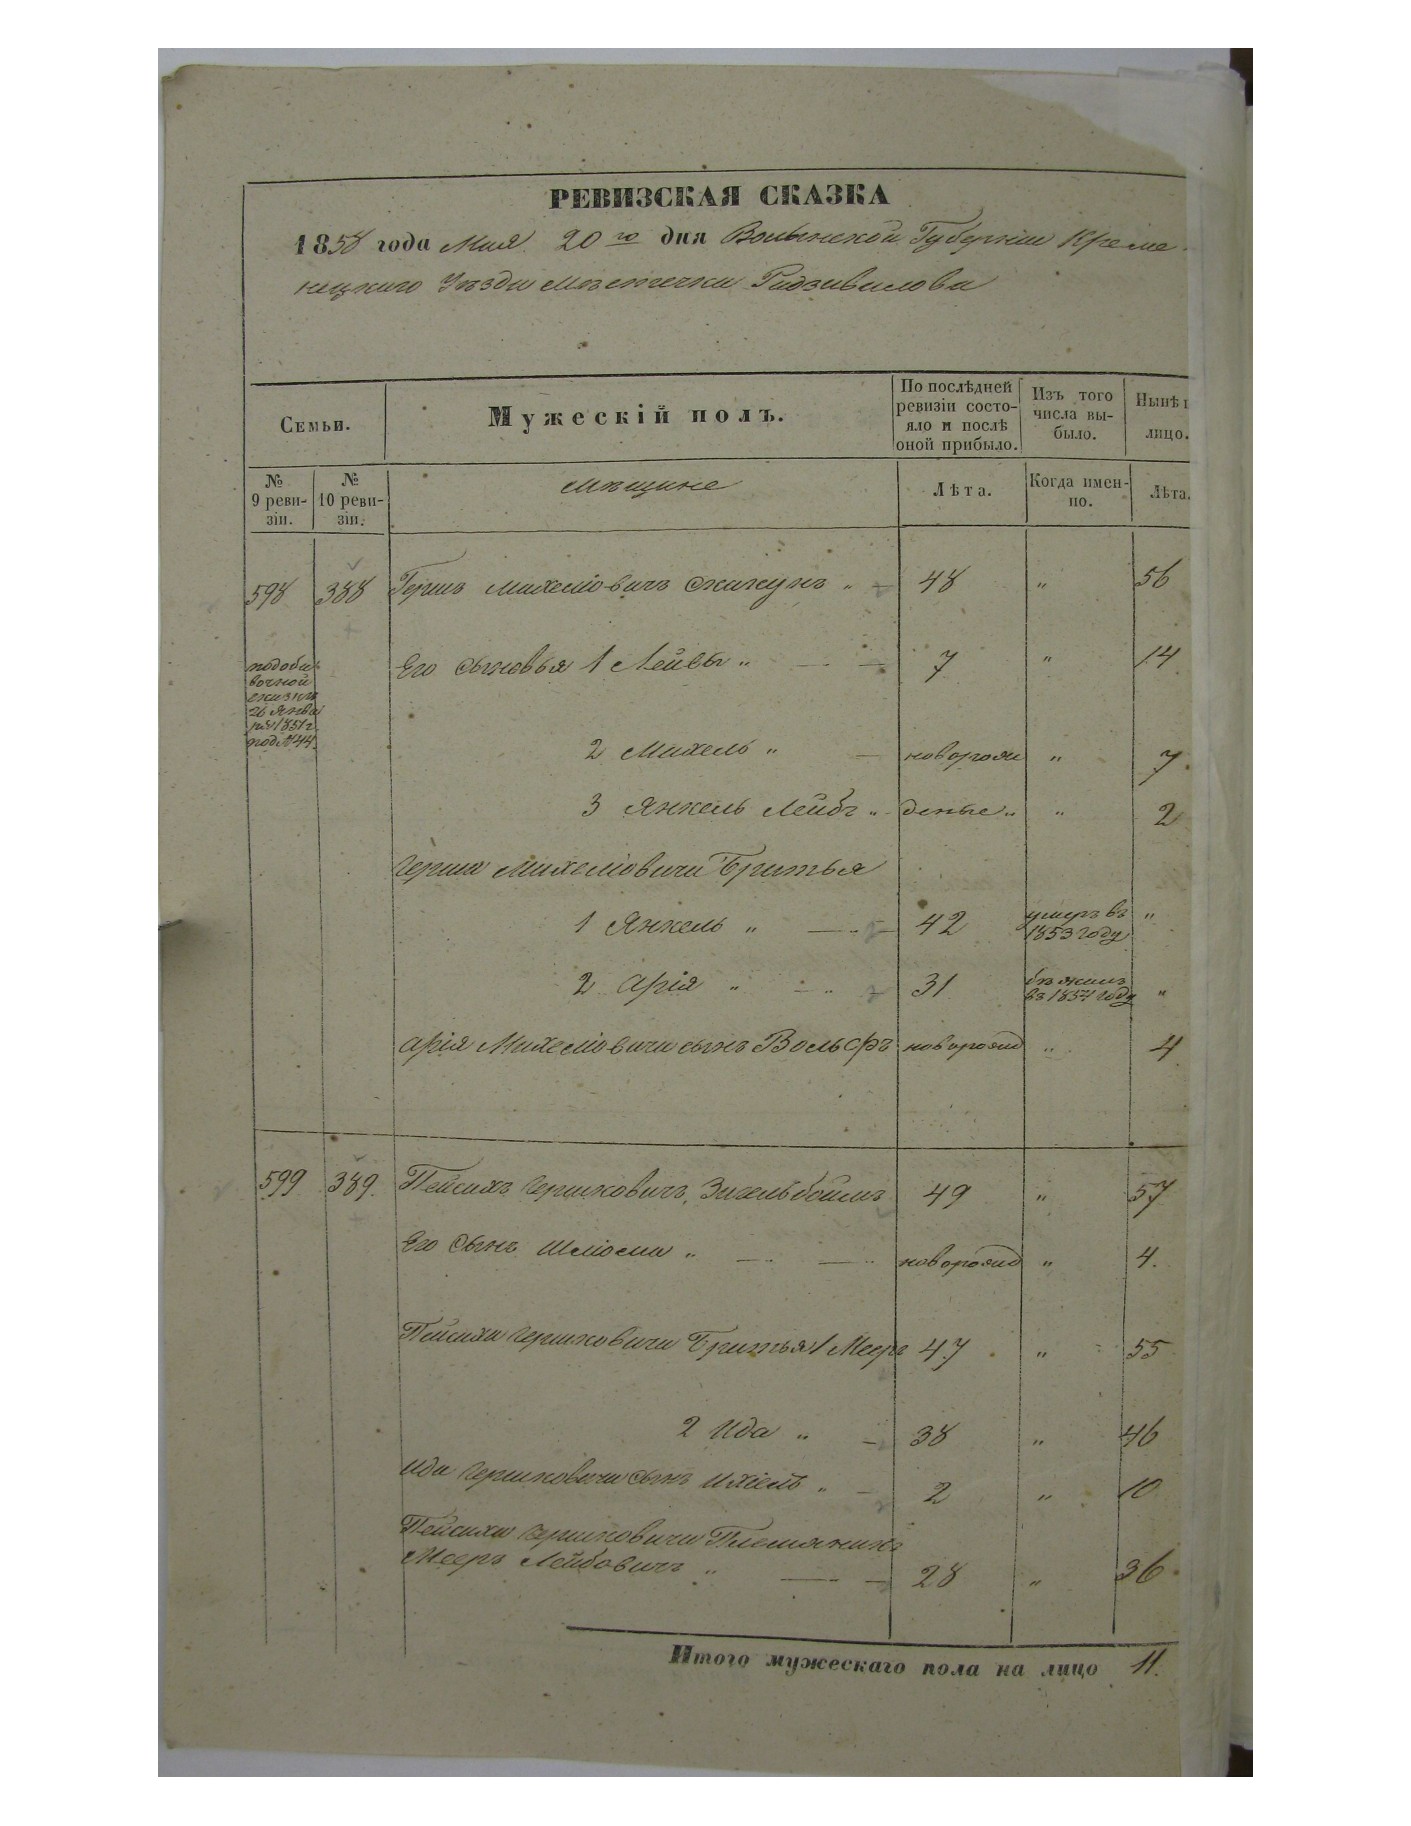 РЕВИЗСКАЯ СКАЗКА
1858 года Мая 20го дня Волынской Губерніи Креме-
нецкаго Уѣзда Мѣстечка Радзивилова
Семьи.
Мужескій полъ.
По послѣдней ревизіи состо-
яло и послѣ оной прибыло.
Изъ того числа вы-
было.
Нынѣ
лицо.
№ 9 реви-
зіи.
№ 10 реви-
зіи.
Мѣщане
Лѣта.
Когда имен-
но.
Лѣта.
598 388 Гершъ Михеліовичъ " — 48 " 56
Его Сыновья 1 Лейвы " — — 7 " 14
подоба
вочной
сказкѣ
26 Янва
ря 1851 г
под № 44.
2 Михель " — новорож " 7.
3 Янкель Лейбъ " деные " " 2
Герша Михеліовича Братья
1 Янкель " — 42 умеръ въ 1853 году "
2 Арія " — 31 бѣжалъ въ 1857 году "
Арія Михеліовича сынъ Вольфъ новорожд " 4
599 389. Пейсахъ Гершковичъ Зигельбоймъ 49 " 57
Его Сынъ Шліома " — — новорожд " 4.
Пейсаха Гершковича Братья 1 Мееръ 47 " 55
2 Ида " — 38 " 46
Ида Гершковича Сынъ Ихіель " — 2 " 10
Пейсаха Гершковича Племянникъ
Мееръ Лейбовичъ " — — 28 " 36
Итого мужескаго пола на лицо 11.